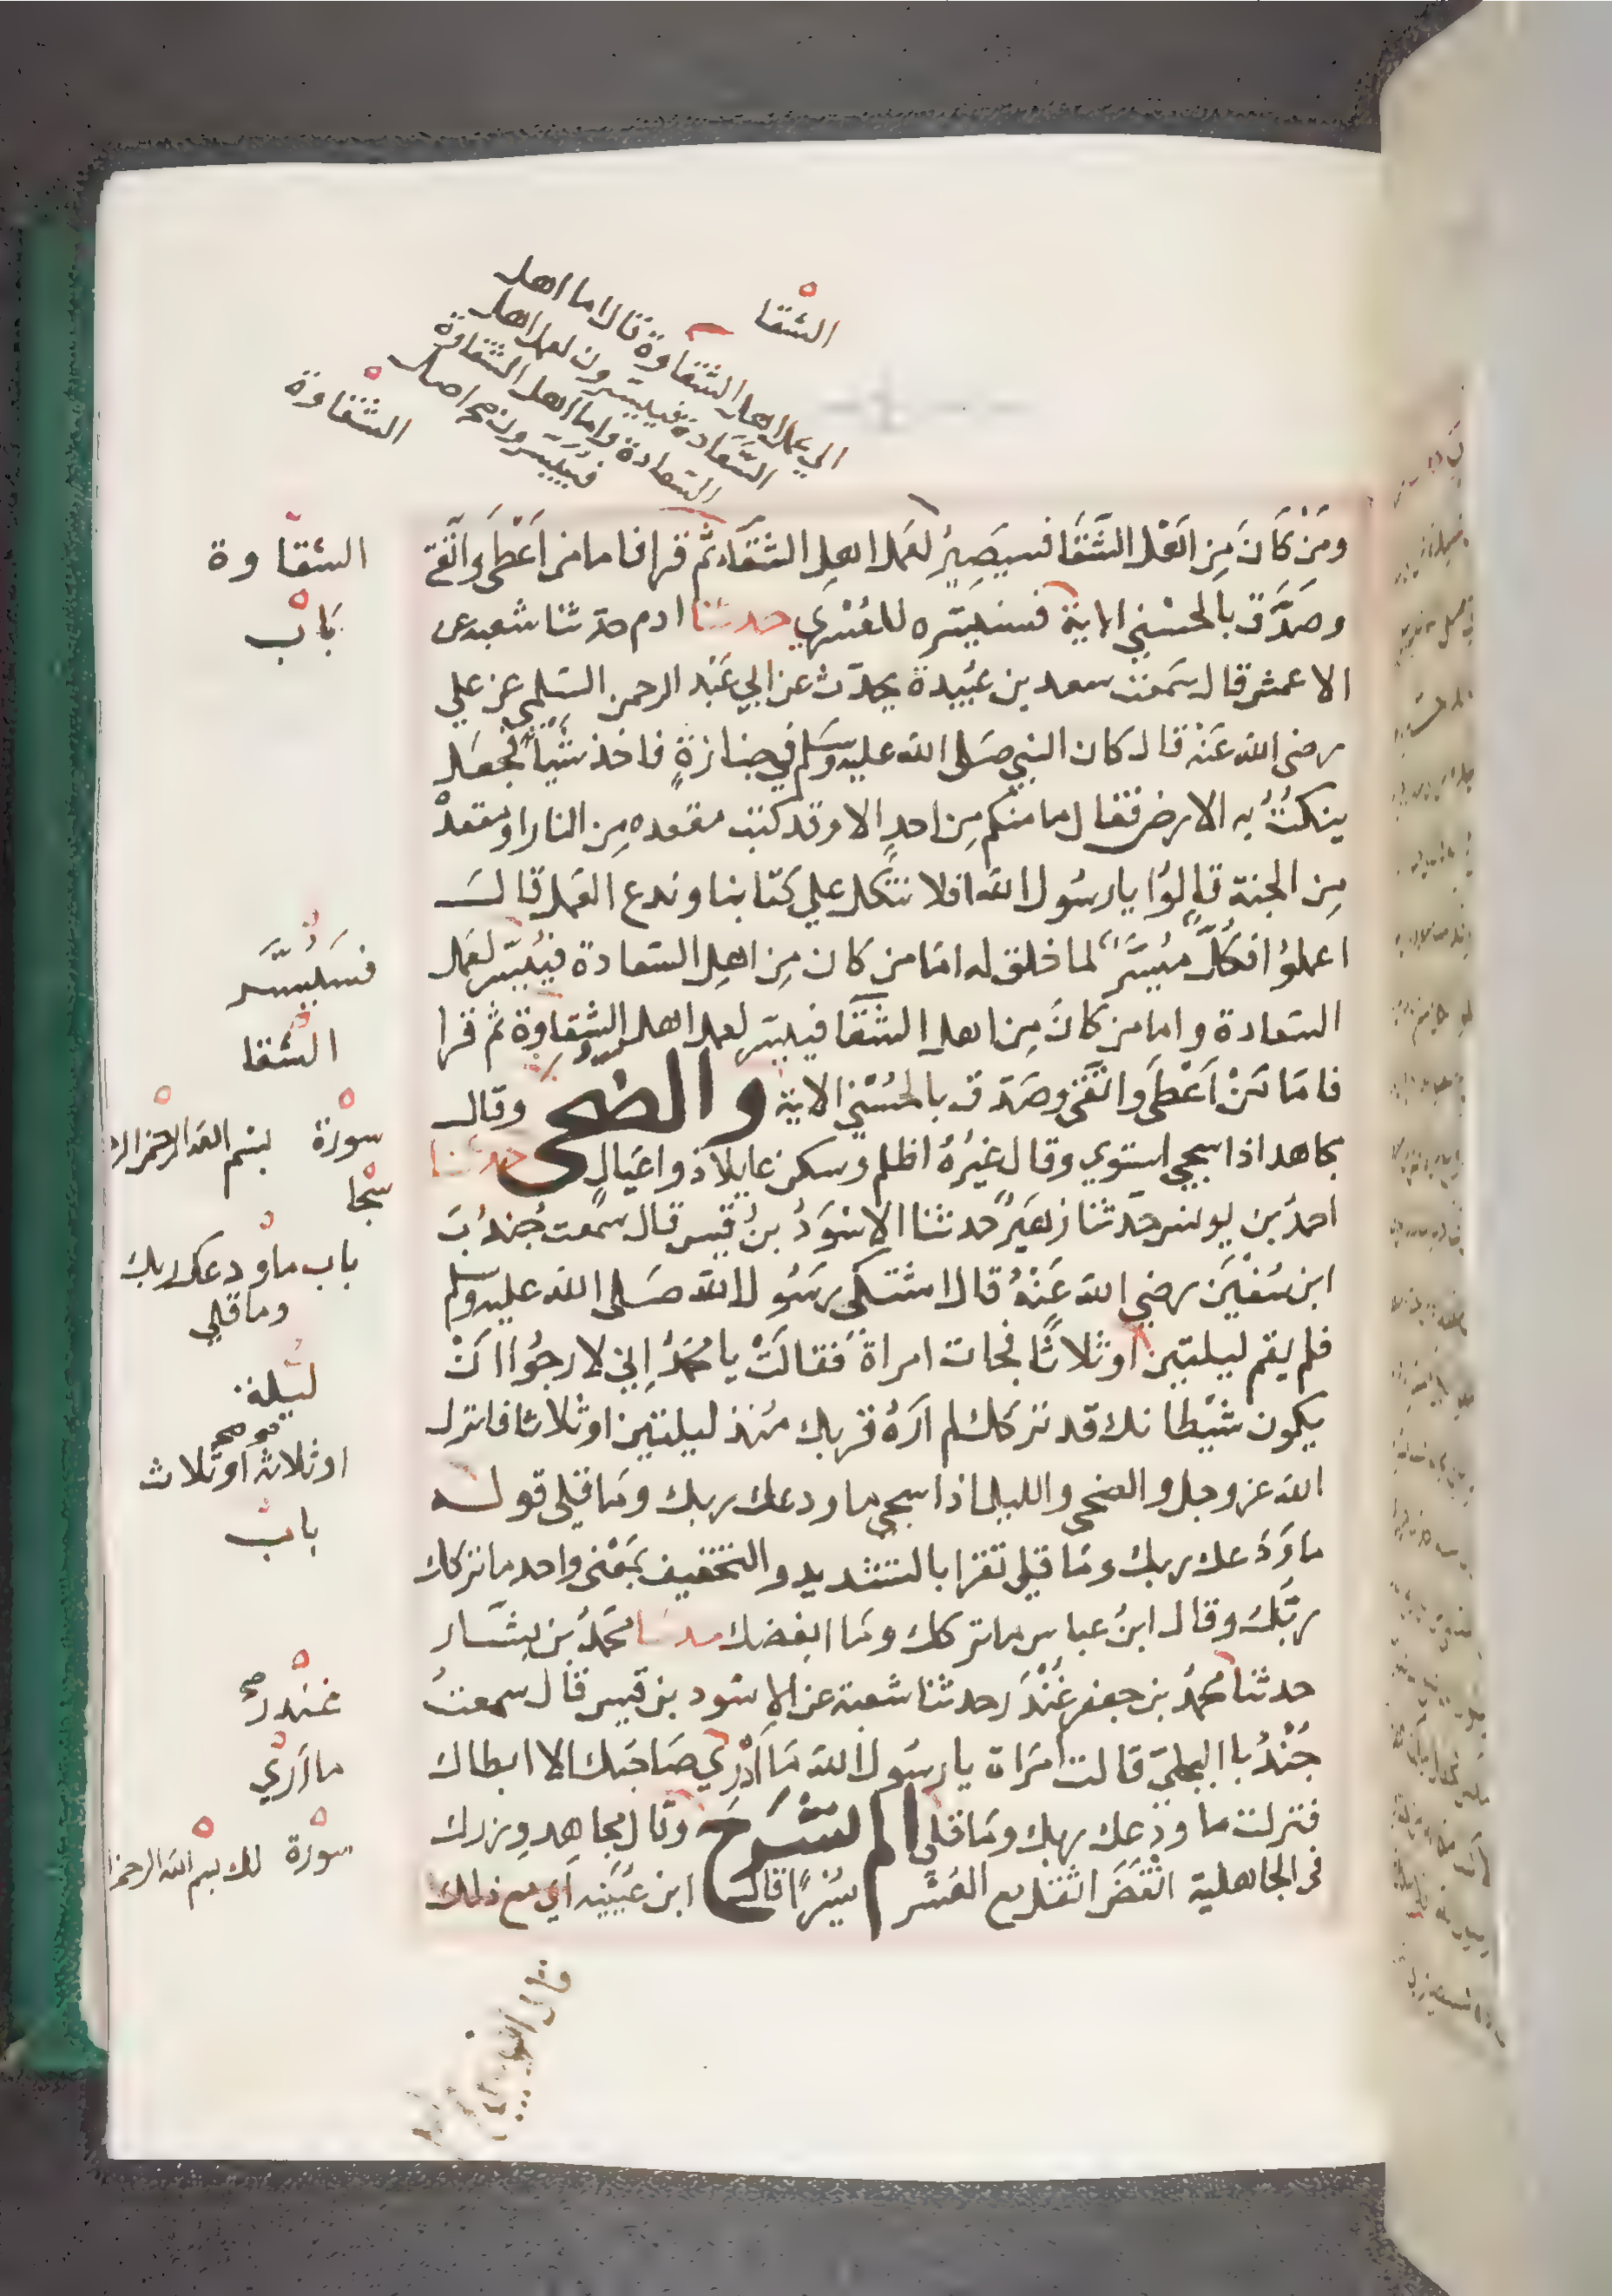 الشقا
الي عمل اهل الشقاوة قال اما اهل
السَّعَادة فييسّرون لعمل اهل
السعادة واما اهل الشقاوة
فيُيَسّرون صح اصل
الشقاوة
ومَنْ كَانَ مِن اَهْل الشَّقَا فسيَصِيرُ لعَمل اهلِ الشقَاء ثم قرا فاما من اَعْطَى وَاتَّقى
وصَدَّق بالحُسْنى الاية فسنيسّره لليُسْرَي حدثنا ادم حدثنا شعبة عن
الاعمش قال سَمعت سعد بن عُبَيدة يحدّث عن ابي عَبْد الرحمن السّلمي عن علي
رضي الله عَنْه قال كان النبي صَلى الله عليه وسَلم في جنازةٍ فاخذ شيْئًا فجعَل
ينكتُ به الارض فقال ما منكم مِن احدٍ الا وقد كتب مقعده مِن النار او مقعدهْ
مِن الجنة قالوُا يا رسُول الله افلا نتكل علي كتابنا وندع العَمل قال
اعملوُا فكلٌّ مُيسَّرٌ لما خلق له امّا من كان مِن اهلِ السّعادة فيُيسّر لعَمل
السّعادة واما من كان مِن اهل الشَّقَا فييسّر لعمل اهل الشقاوة ثم قرا
فامّا مَنْ اَعْطَى واتَّقى وصَدّق بالحُسْنى الاية والضحى وقال
مجاهد اذا سجي استوي وقال غيْرُهُ اظلم وسكن عايلا ذو اعيَالٍ حدثنا
احمدُ بن يونس حدّثنا زهَيرٌ حدثنا الاسْوَدُ بنُ قيس قال سمعت جُندُبَ
ابن سُفْيٰن رضي الله عَنْهُ قال اشتكى رسُول الله صَلى الله عليه وسلم
فلم يقم ليلتين او ثلاثًا فجات امراة فقالَتْ يا محمّدُ اِني لارجُوا اَنْ
يكون شيْطانك قد تركك لم اَرَهُ قربك مُنذ ليلتين او ثلاثا فانزل
الله عز وجل والضحى والليل اذا سجي ما ودعك ربك ومَا قلى قوله
ما وَدّعك ربك ومَا قلى تقرا بالتشديد والتخفيف بمَعْنى واحد ما تركك
ربّك وقال ابنُ عباس ما تركك ومَا ابغضك حدثنا محمّدُ بن بشّار
حدثنا محمدُ بن جعفر غُنْدَر حدثنا شعبة عن الاسْود بن قيس قال سمعتُ
جُنْدُبا البجليّ قالت امرَاة يا رسُول الله مَا اَرْي صَاحبَك الا ابطاك
فنزلت ما ودعك ربك ومَا قلى الم نشرح وقال مجاهِد وِزرك
في الجاهلية انْقَضَ اثقل مع العُسْر يُسْرًا قال ابن عُيَيْنه اَي مع ذلك
الشقاوة
بَابْ
فسَيُيَسَّر
الشقا
سورة بسم الله الرحمن الر
سَجَا
باب ما ودعك ربك
وما قلي
ليلة
او ثلاثه او ثلاث
باب
غندرٌ صح
ما اَرَي
سورة لك بسم الله الرحمن